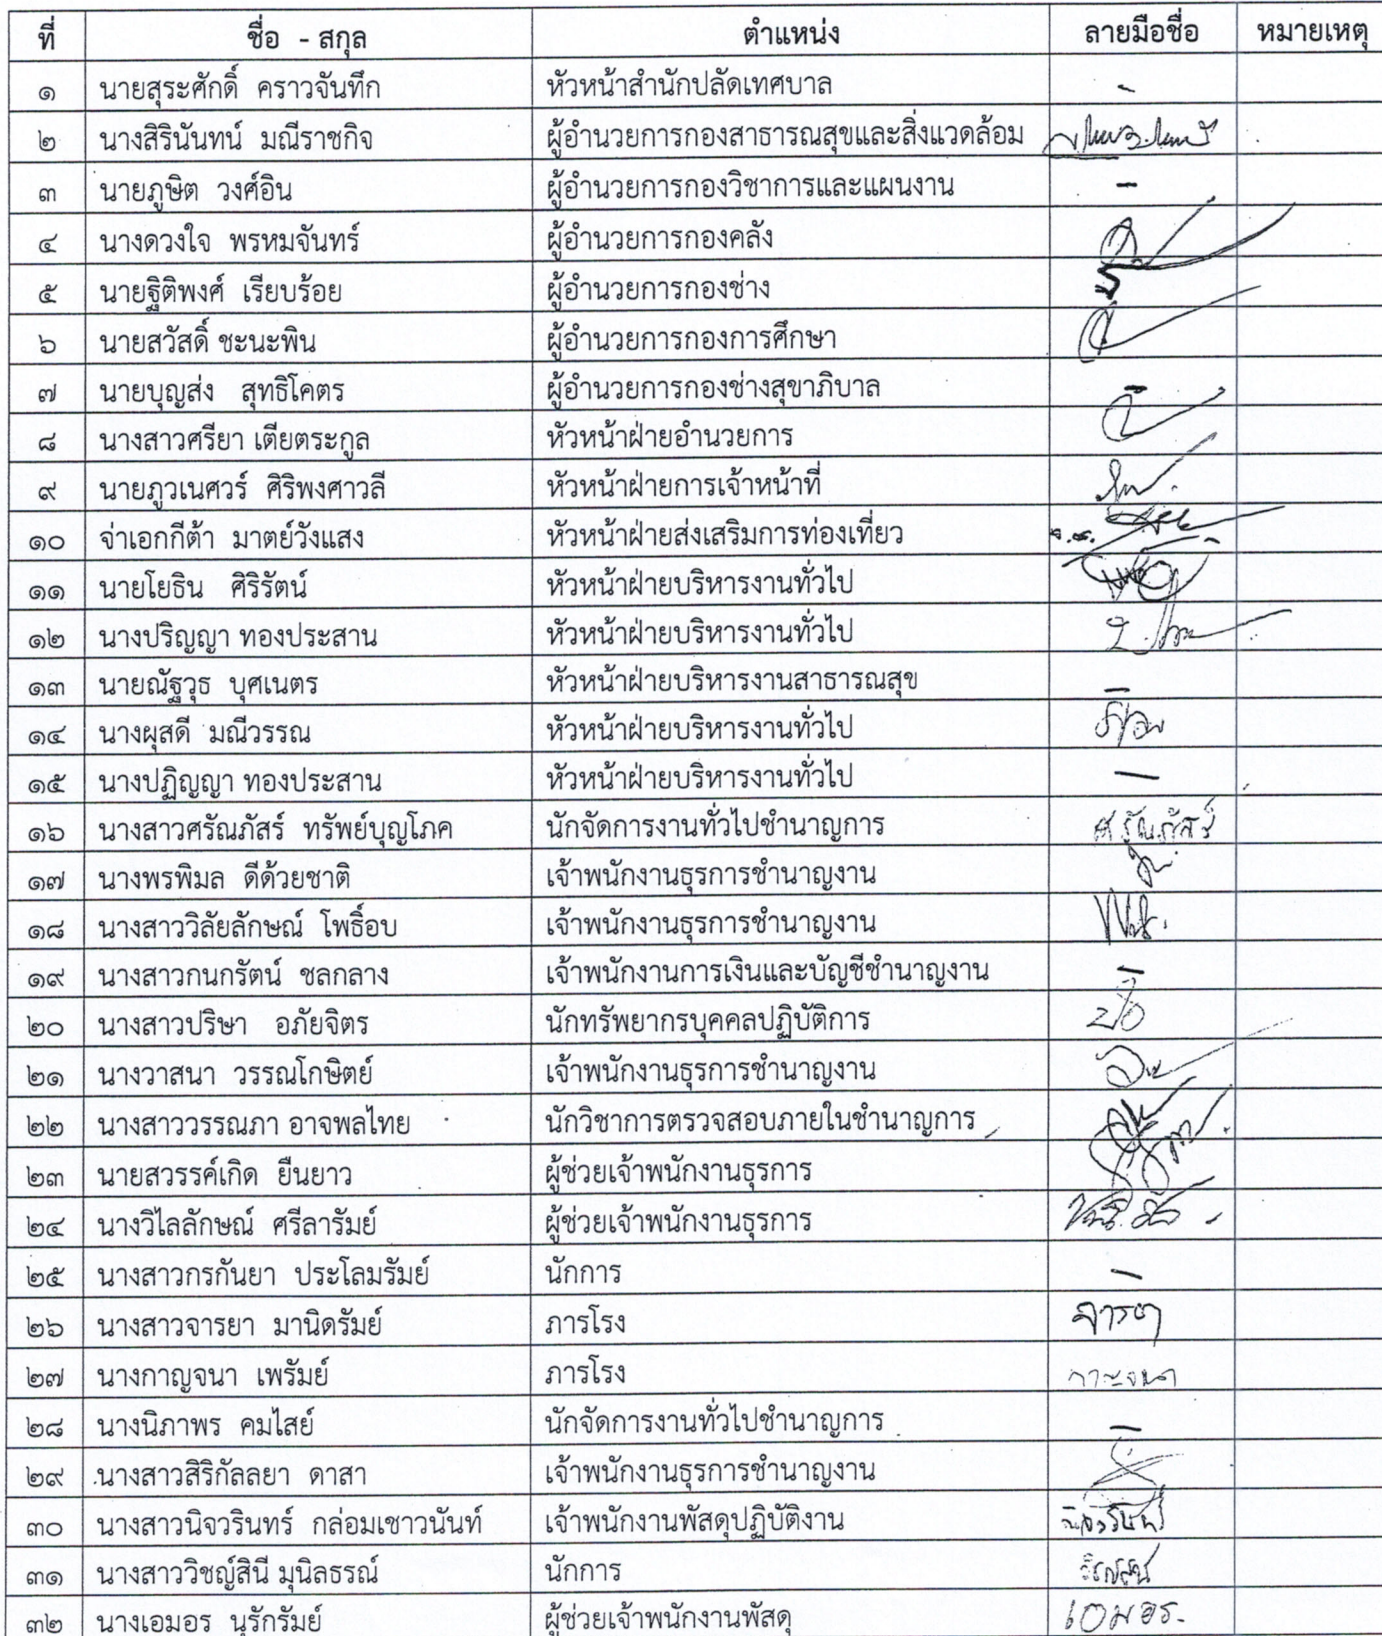 ที่ ชื่อ - สกุล ตำแหน่ง ลายมือชื่อ หมายเหตุ
๑ นายสุระศักดิ์ คราวจันทึก หัวหน้าสำนักปลัดเทศบาล -
๒ นางสิรินันทน์ มณีราชกิจ ผู้อำนวยการกองสาธารณสุขและสิ่งแวดล้อม
๓ นายภูษิต วงศ์อิน ผู้อำนวยการกองวิชาการและแผนงาน -
๔ นางดวงใจ พรหมจันทร์ ผู้อำนวยการกองคลัง
๕ นายฐิติพงศ์ เรียบร้อย ผู้อำนวยการกองช่าง
๖ นายสวัสดิ์ ชะนะพิน ผู้อำนวยการกองการศึกษา
๗ นายบุญส่ง สุทธิโคตร ผู้อำนวยการกองช่างสุขาภิบาล -
๘ นางสาวศรียา เตียตระกูล หัวหน้าฝ่ายอำนวยการ
๙ นายภูวเนศวร์ ศิริพงศาวลี หัวหน้าฝ่ายการเจ้าหน้าที่
๑๐ จ่าเอกกีต้า มาตย์วังแสง หัวหน้าฝ่ายส่งเสริมการท่องเที่ยว จ.อ.
๑๑ นายโยธิน ศิริรัตน์ หัวหน้าฝ่ายบริหารงานทั่วไป
๑๒ นางปริญญา ทองประสาน หัวหน้าฝ่ายบริหารงานทั่วไป
๑๓ นายณัฐวุธ บุศเนตร หัวหน้าฝ่ายบริหารงานสาธารณสุข -
๑๔ นางผุสดี มณีวรรณ หัวหน้าฝ่ายบริหารงานทั่วไป
๑๕ นางปฏิญญา ทองประสาน หัวหน้าฝ่ายบริหารงานทั่วไป -
๑๖ นางสาวศรัณภัสร์ ทรัพย์บุญโภค นักจัดการงานทั่วไปชำนาญการ ศรัณภัสร์
๑๗ นางพรพิมล ดีด้วยชาติ เจ้าพนักงานธุรการชำนาญงาน
๑๘ นางสาววิลัยลักษณ์ โพธิ์อบ เจ้าพนักงานธุรการชำนาญงาน
๑๙ นางสาวกนกรัตน์ ชลกลาง เจ้าพนักงานการเงินและบัญชีชำนาญงาน -
๒๐ นางสาวปริษา อภัยจิตร นักทรัพยากรบุคคลปฏิบัติการ
๒๑ นางวาสนา วรรณโกษิตย์ เจ้าพนักงานธุรการชำนาญงาน
๒๒ นางสาววรรณภา อาจพลไทย นักวิชาการตรวจสอบภายในชำนาญการ
๒๓ นายสวรรค์เกิด ยืนยาว ผู้ช่วยเจ้าพนักงานธุรการ
๒๔ นางวิไลลักษณ์ ศรีลารัมย์ ผู้ช่วยเจ้าพนักงานธุรการ
๒๕ นางสาวกรกันยา ประโลมรัมย์ นักการ -
๒๖ นางสาวจารยา มานิดรัมย์ ภารโรง จารยา
๒๗ นางกาญจนา เพรัมย์ ภารโรง กาญจนา
๒๘ นางนิภาพร คมไสย์ นักจัดการงานทั่วไปชำนาญการ -
๒๙ นางสาวสิริกัลลยา ดาสา เจ้าพนักงานธุรการชำนาญงาน
๓๐ นางสาวนิจวรินทร์ กล่อมเชาวนันท์ เจ้าพนักงานพัสดุปฏิบัติงาน นิจวรินทร์
๓๑ นางสาววิชญ์สินี มุนิลธรณ์ นักการ
๓๒ นางเอมอร นุรักรัมย์ ผู้ช่วยเจ้าพนักงานพัสดุ เอมอร